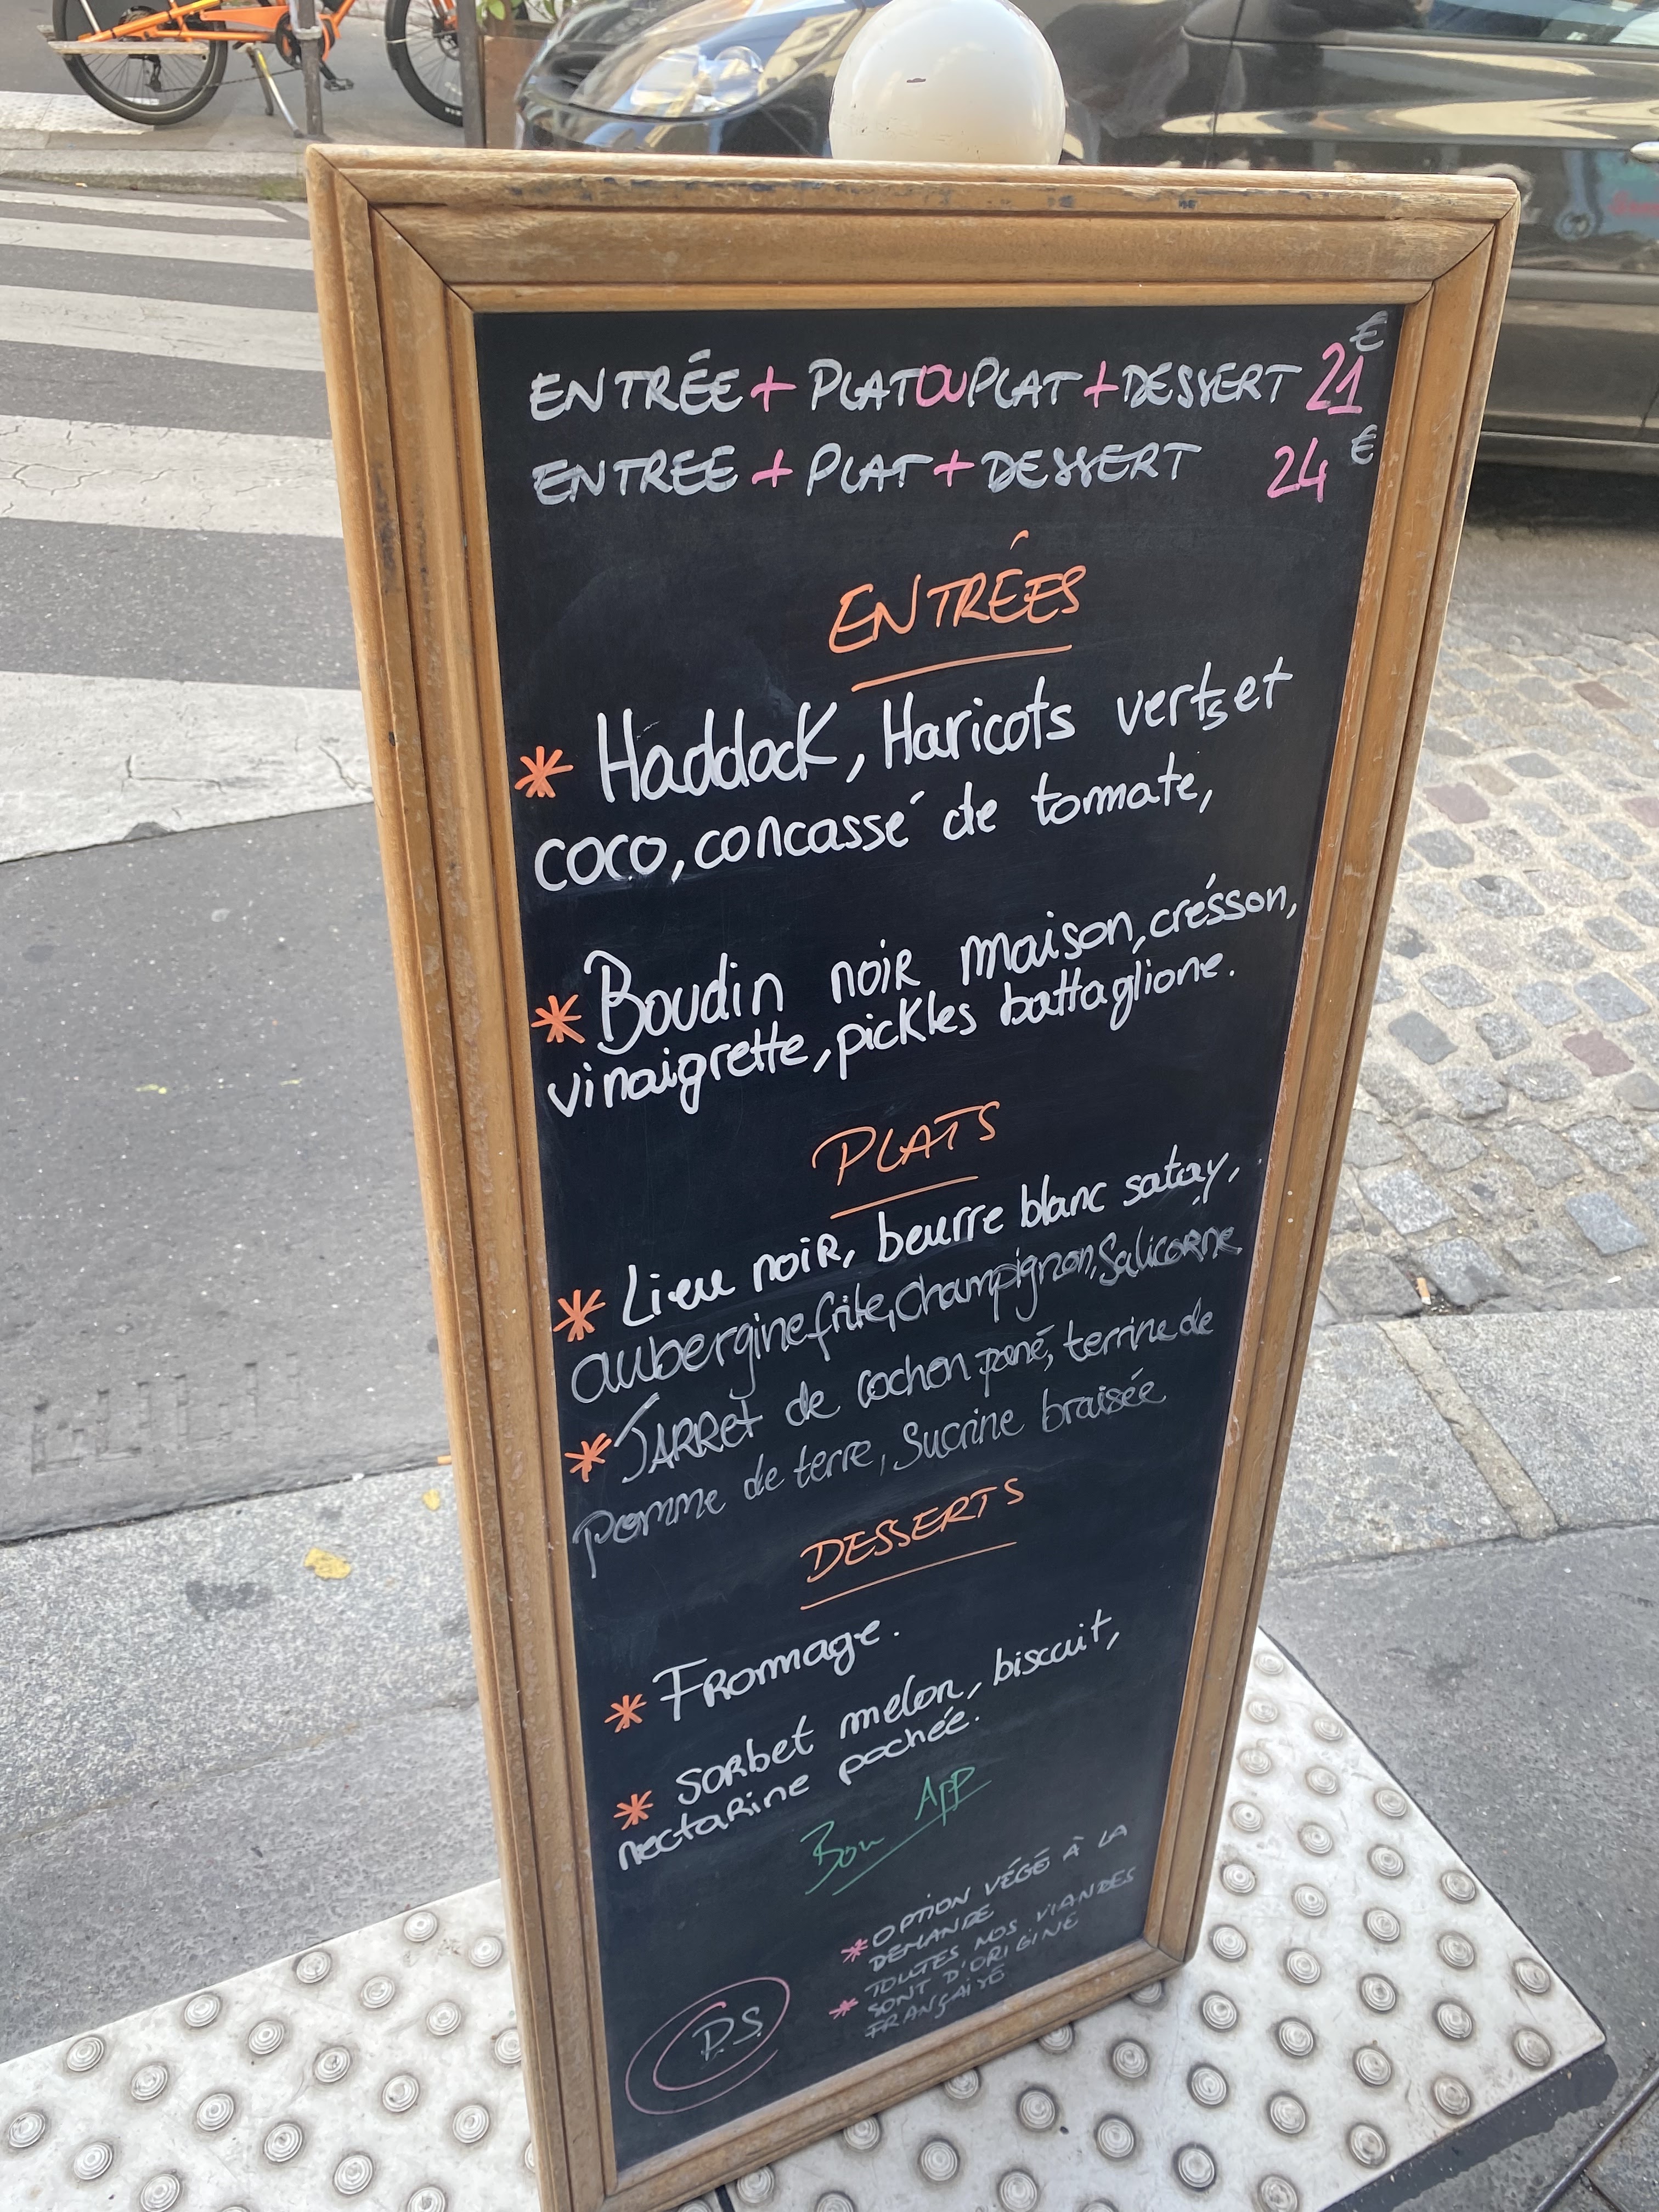 ENTRÉE + PLAT OU PLAT + DESSERT 21€
ENTREE + PLAT + DESSERT 24€
ENTRÉES
* Haddock, Haricots verts et
coco, concassé de tomate,
* Boudin noir maison, crésson,
vinaigrette, pickles battaglione.
PLATS
* Lieu noir, beurre blanc satay,
aubergine frite, champignon, Salicorne
* JARRet de cochon pané, terrine de
pomme de terre, Sucrine braisée
DESSERTS
* Fromage.
* sorbet melon, biscuit,
nectarine pochée.
Bon APP
* OPTION VÉGÉ À LA
DEMANDE
* TOUTES NOS VIANDES
SONT D'ORIGINE
P.S.